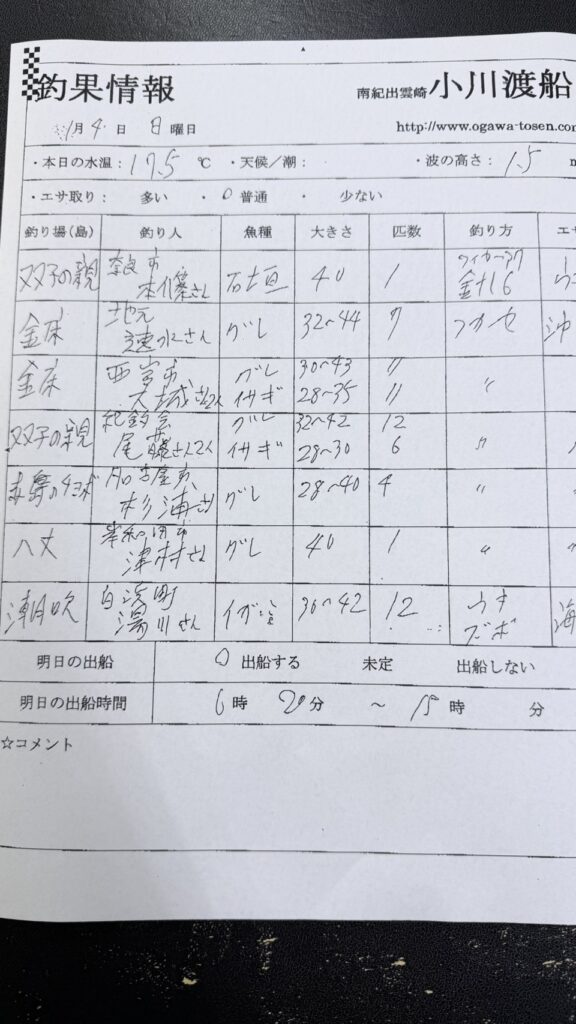 釣果情報 南紀出雲崎 小川渡船
1月4日 日曜日 http://www.ogawa-tosen.com
・本日の水温：17.5 ℃ ・天候／潮： ・波の高さ：1.5 m
・エサ取り： 多い ・ 0 普通 ・ 少ない
釣り場(島) 釣り人 魚種 大きさ 匹数 釣り方 エサ
双子の親 奈良市 さん 石垣 40 1 16
金床 地元 速水さん グレ 32~44 7 フカセ 沖
金床 西宮市 大城さん2人 グレ 30~43 〃 〃
イサギ 28~35 〃
双子の親 紀釣会 尾藤さん2人 グレ 32~42 12 〃
イサギ 28~30 6
名古屋市 杉浦さん グレ 28~40 4 〃
八丈 岸和田市 津村さん グレ 40 1 〃
潮吹 白浜町 湯川さん イガミ 30~42 12 ウキ ズボ 海
明日の出船 0 出船する 未定 出船しない
明日の出船時間 6時 20分 ～ 15時 分
☆コメント